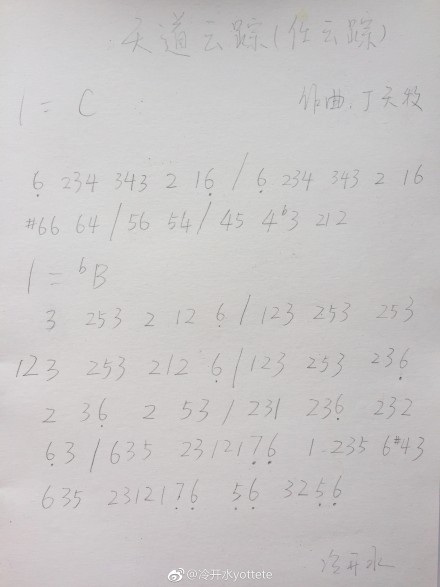 天道云踪(任云踪)
1 = C
作曲:丁天牧
6̣ 234 343 2 16̣ / 6̣ 234 343 2 16
#66 64 / 56 54 / 45 4ᵇ3 212
1 = ᵇB
3 253 2 12 6̣ / 123 253 253
123 253 212 6̣ / 123 253 236̣
2 36̣ 2 53 / 231 236̣ 232
6̣3 / 635 231217̣6̣ 1·235 6#43
635 231217̣6̣ 5̣6̣ 325̣6̣
冷开水
@冷开水yottete